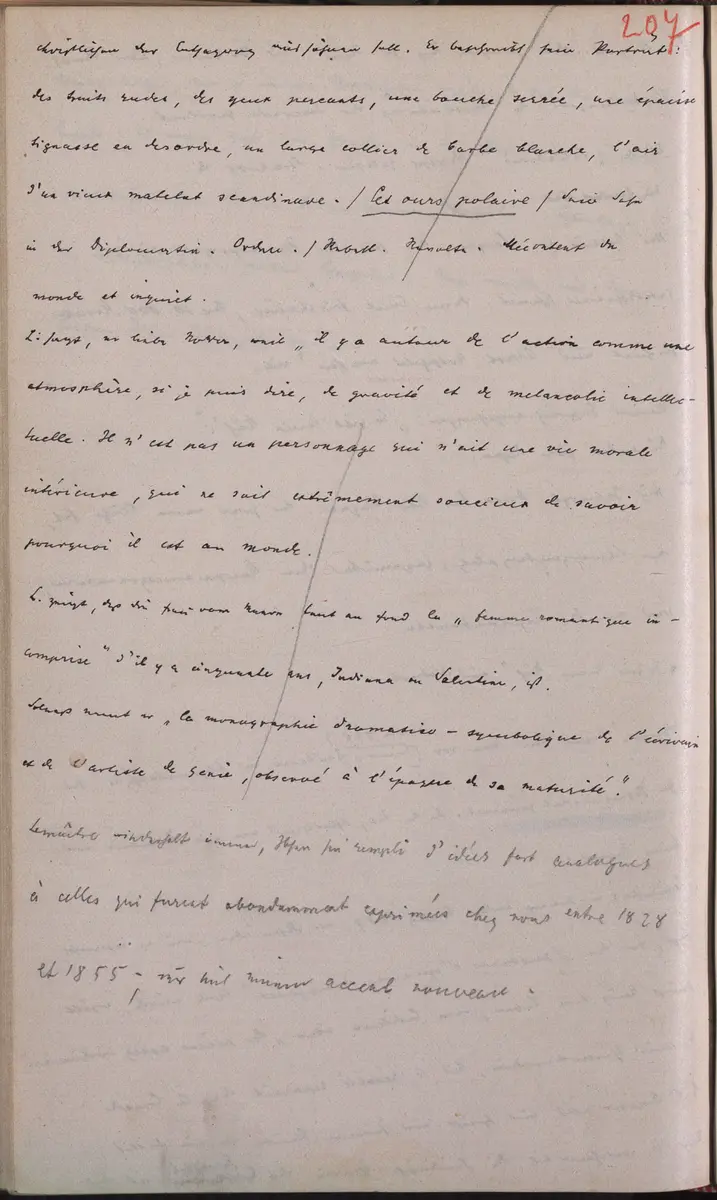 207
christlichen der Entsagung aussöhnen soll. Er beschreibt sein Porträt:
des traits rudes, des yeux perçants, une bouche serrée, une épaisse
tignasse en desordre, un large collier de barbe blanche, l'air
d'un vieux matelot scandinave. / Cet ours polaire / Sein Sohn
in der Diplomatie. Orden. / Rebell. Revolte. Mécontent du
monde et inquiet.
weil „il y a autour de l'action comme une
atmosphère, si je puis dire, de gravité et de melancolie intellec-
tuelle. Il n'est pas un personnage qui n'ait une vie morale
intérieure, qui ne soit extrêmement soucieux de savoir
pourquoi il est au monde.
L. zeigt, dass die Frau vom Meere au fond la „femme romantique in-
comprise" d'il y a cinquante ans, Indiana ou Valentine, ist.
Solness nennt er „la monographie dramatico-symbolique de l'écrivain
et de l'artiste de genie, observé à l'époque de sa maturité".
Lemaître wiederholt immer, Ibsen sei rempli d'idées fort analogues
à celles qui furent abondamment exprimées chez nous entre 1828
et 1855; nur mit einem accent nouveau.